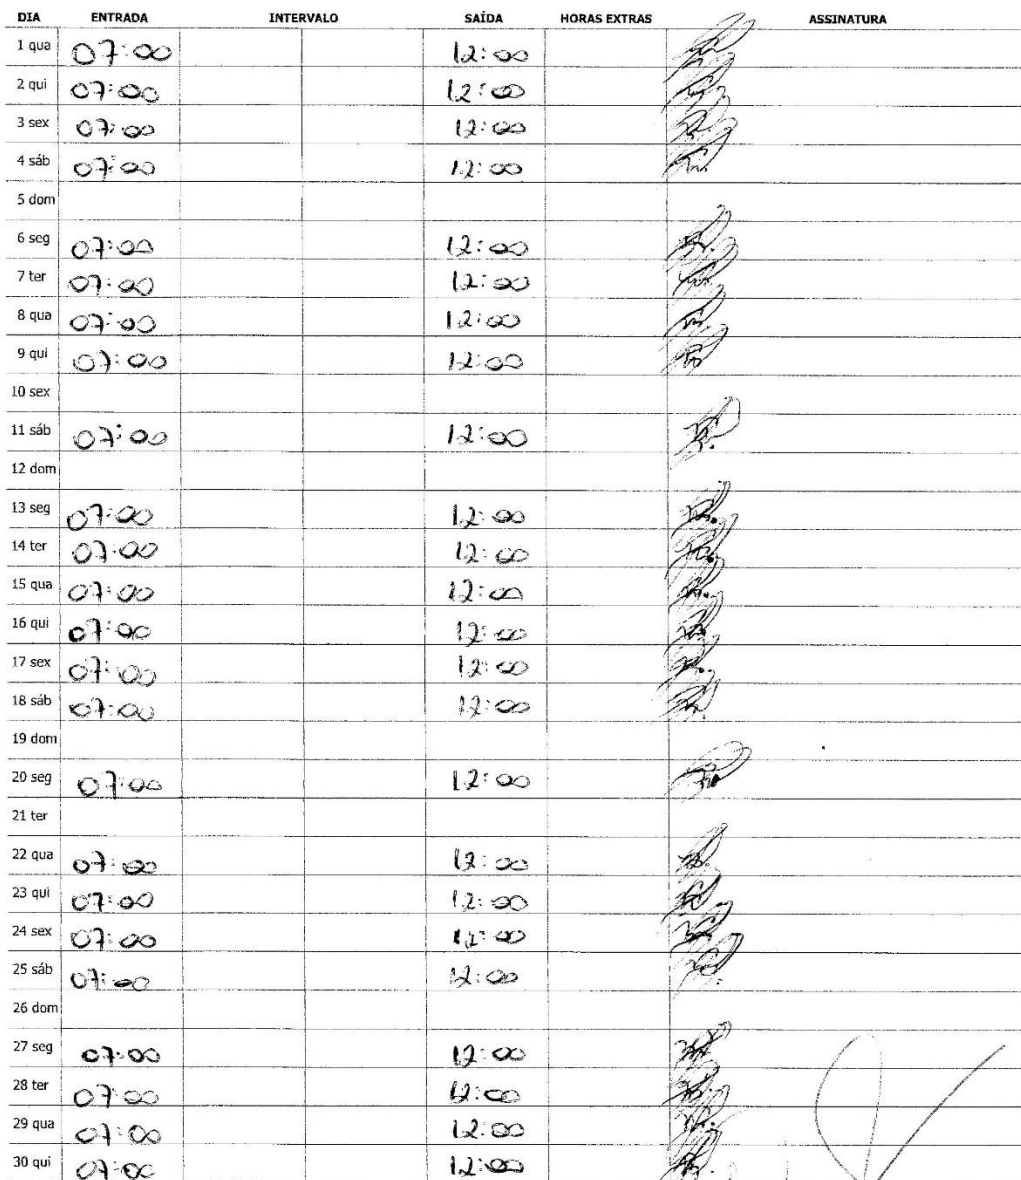 DIA ENTRADA INTERVALO SAÍDA HORAS EXTRAS ASSINATURA
1 qua 07:00 12:00
2 qui 07:00 12:00
3 sex 07:00 12:00
4 sáb 07:00 12:00
5 dom
6 seg 07:00 12:00
7 ter 07:00 12:00
8 qua 07:00 12:00
9 qui 07:00 12:00
10 sex
11 sáb 07:00 12:00
12 dom
13 seg 07:00 12:00
14 ter 07:00 12:00
15 qua 07:00 12:00
16 qui 07:00 12:00
17 sex 07:00 12:00
18 sáb 07:00 12:00
19 dom
20 seg 07:00 12:00
21 ter
22 qua 07:00 12:00
23 qui 07:00 12:00
24 sex 07:00 12:00
25 sáb 07:00 12:00
26 dom
27 seg 07:00 12:00
28 ter 07:00 12:00
29 qua 07:00 12:00
30 qui 07:00 12:00